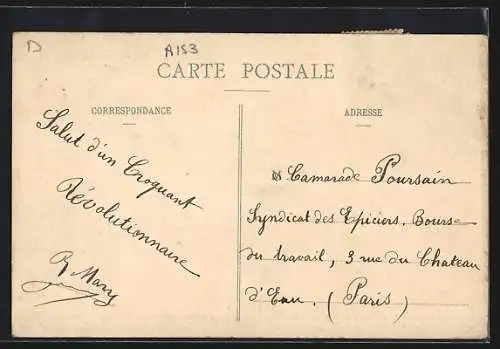 D
A153
CARTE POSTALE
CORRESPONDANCE
Salut d'un Croquant
Révolutionnaire
R Mary
ADRESSE
Camarade Poursain
Syndicat des Epiciers. Bourse
du travail, 3 rue du Chateau
d'Eau. (Paris)